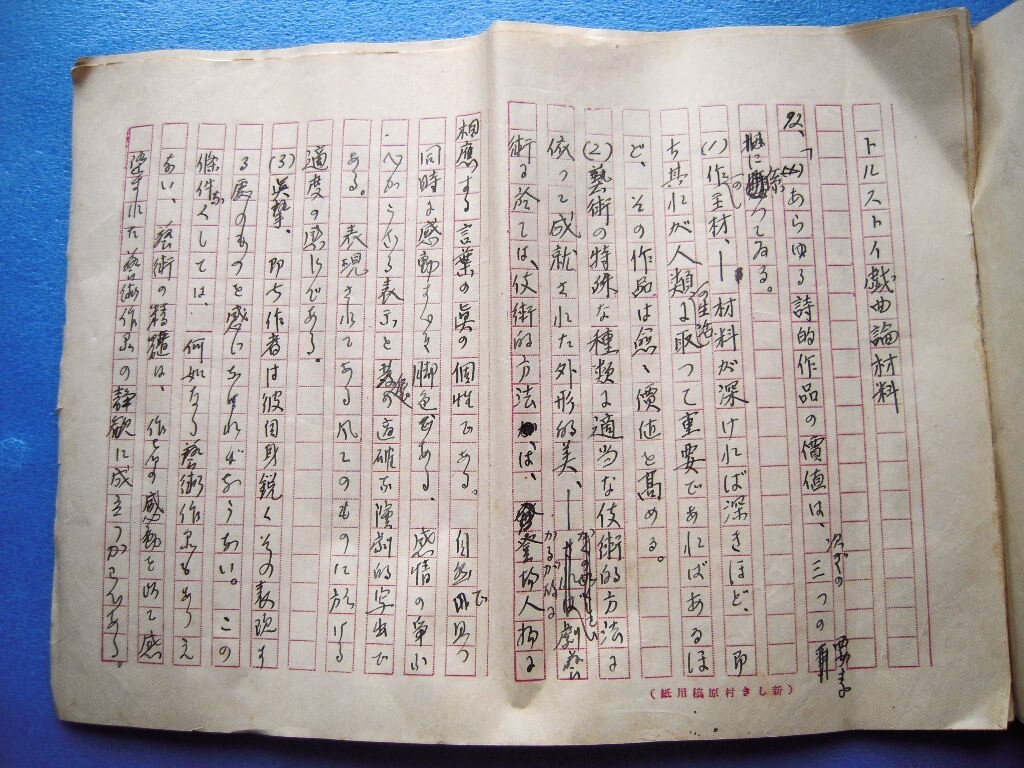 トルストイ戯曲論材料
「あらゆる詩的作品の價値は、次ぎの三つの要素
に係つてゐる。
(1)作の主材、―材料が深ければ深きほど、即
ち其れが人類の生活に取つて重要であればあるほ
ど、その作品は愈、價値を高める。
(2)藝術の特殊な種類に適当な伎術的方法に
依つて成就された外形的美、―劇藝
術に於ては、伎術的方法は、登場人物に
相應する言葉の眞の個性である。自然で且つ
同時に感動すべき脚色である、感情の爭ひ
ある。表現されてある凡てのものに於ける
適度の感じである。
(3)眞摯、即ち作者は彼自身鋭くその表現す
る處のものを感じなければならない。この
條件なくしては、何如なる藝術作品もありえ
ない、藝術の精髓は、作者の感動を以て感
染された藝術作品の静観に成立つからである。
(新しき村原稿用紙)